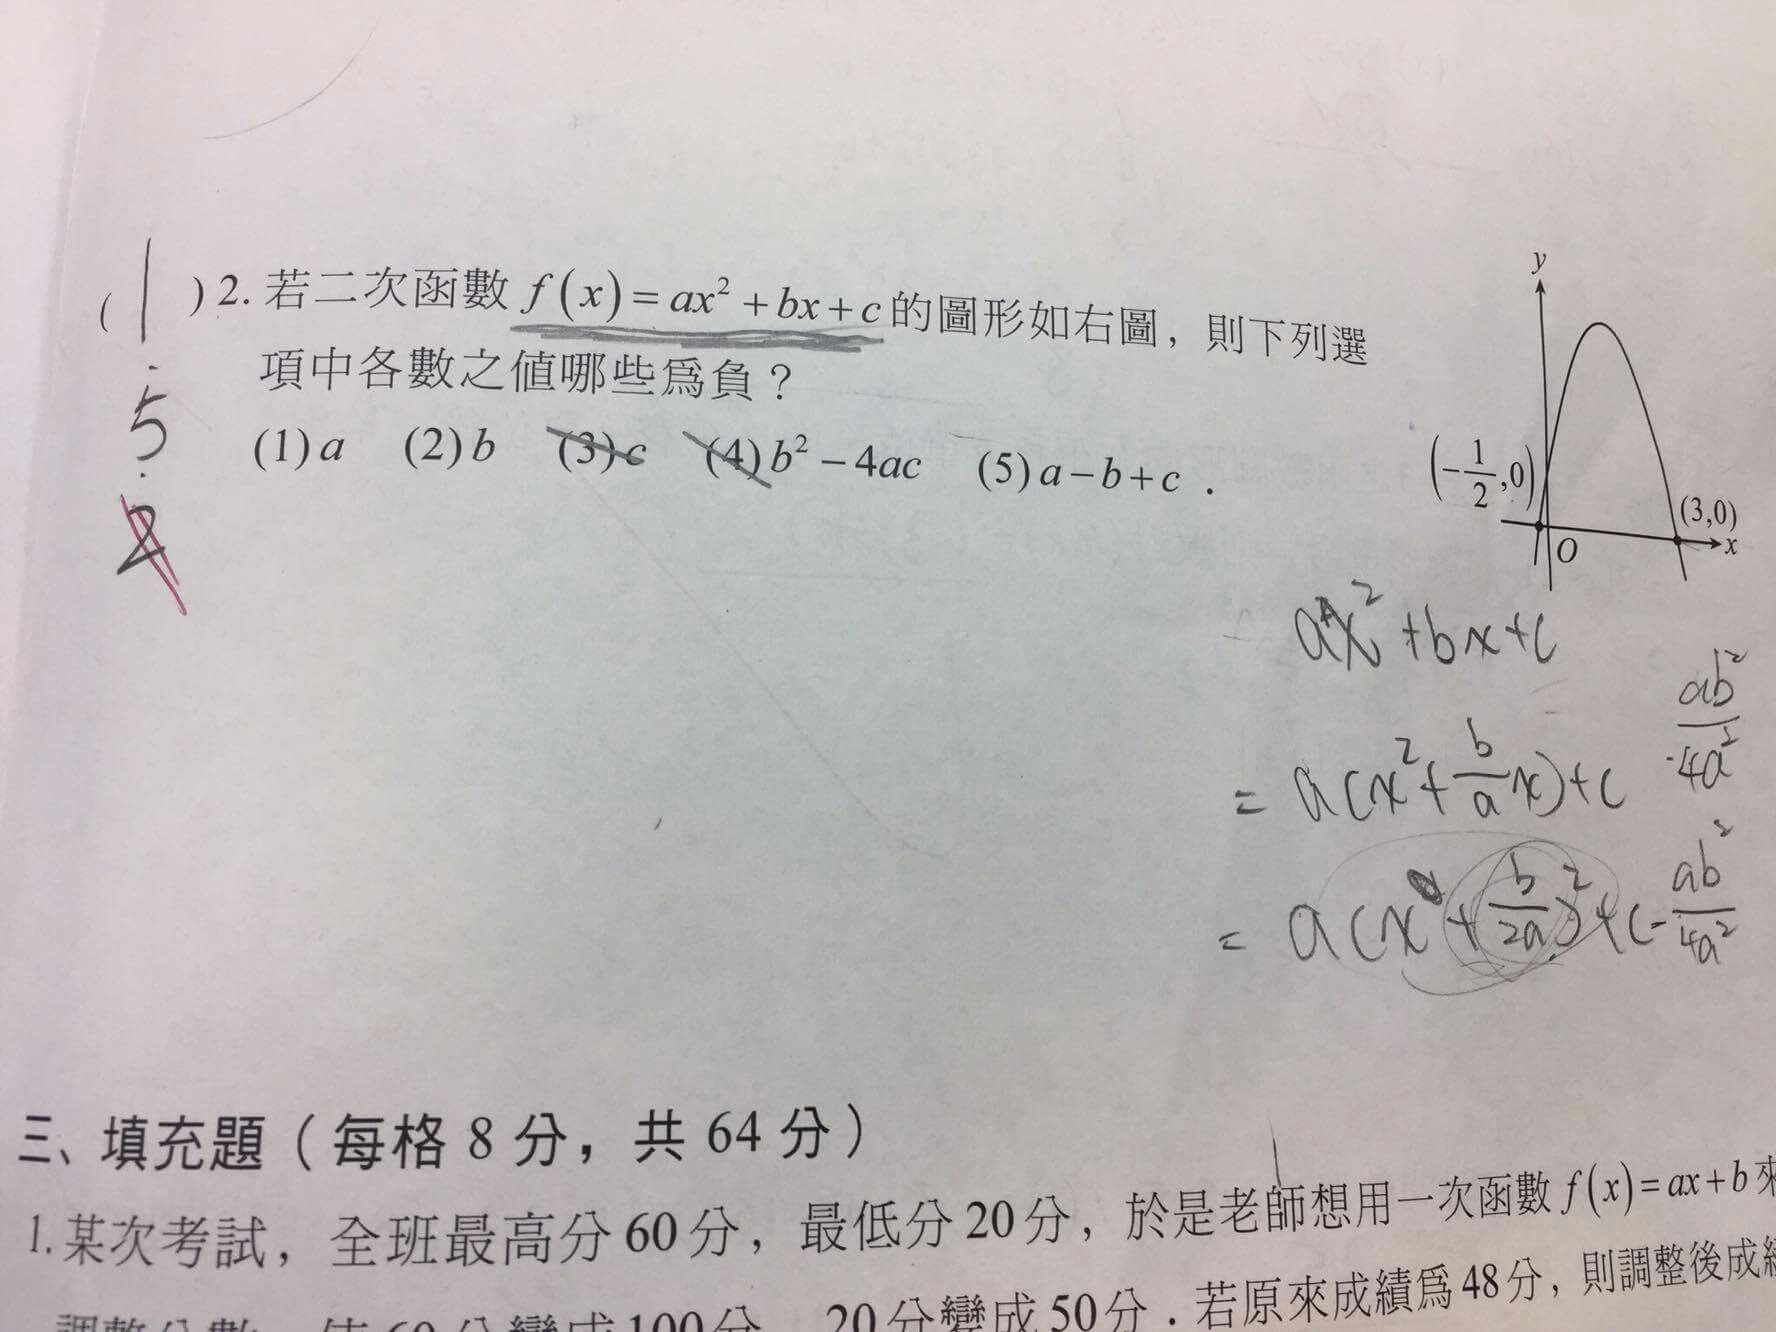 ( 1 ) 2. 若二次函數 f(x)=ax²+bx+c 的圖形如右圖，則下列選
項中各數之値哪些爲負？
(1) a (2) b (3) c (4) b²－4ac (5) a－b＋c．
5
2
y
(－1/2,0)
(3,0)
O
x
ax²+bx+c
= a(x²+b/a x)+c
ab²/-4a²
= a(x+b/2a)²+c-ab²/4a²
三、填充題（每格 8 分，共 64 分）
1. 某次考試，全班最高分 60 分，最低分 20 分，於是老師想用一次函數 f(x)=ax+b 來
調整分數，使 60 分變成 100 分，20 分變成 50 分．若原來成績爲 48 分，則調整後成績